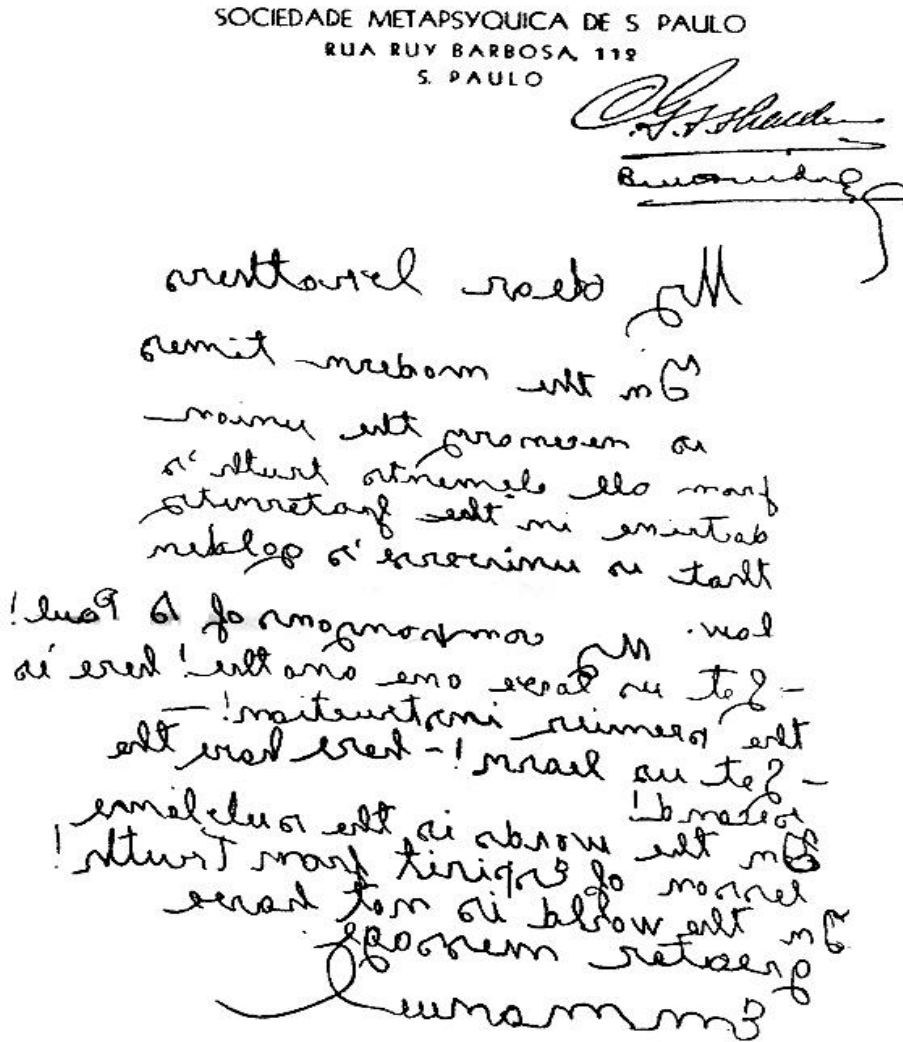 SOCIEDADE METAPSYQUICA DE S PAULO
RUA RUY BARBOSA, 112
S. PAULO
My dear brothers
In the modern times
is necessary the union
from all elements truth's
doctrine in the fraternity
that is universe's golden
law. My companyons of S. Paul!
- Let us love one another! here is
the premier instruction! —
- Let us learn! - here have the
second!
In the words is the sublime
lesson of Espirit from Truth!
In the world is not have
greater message.
Emmanuel